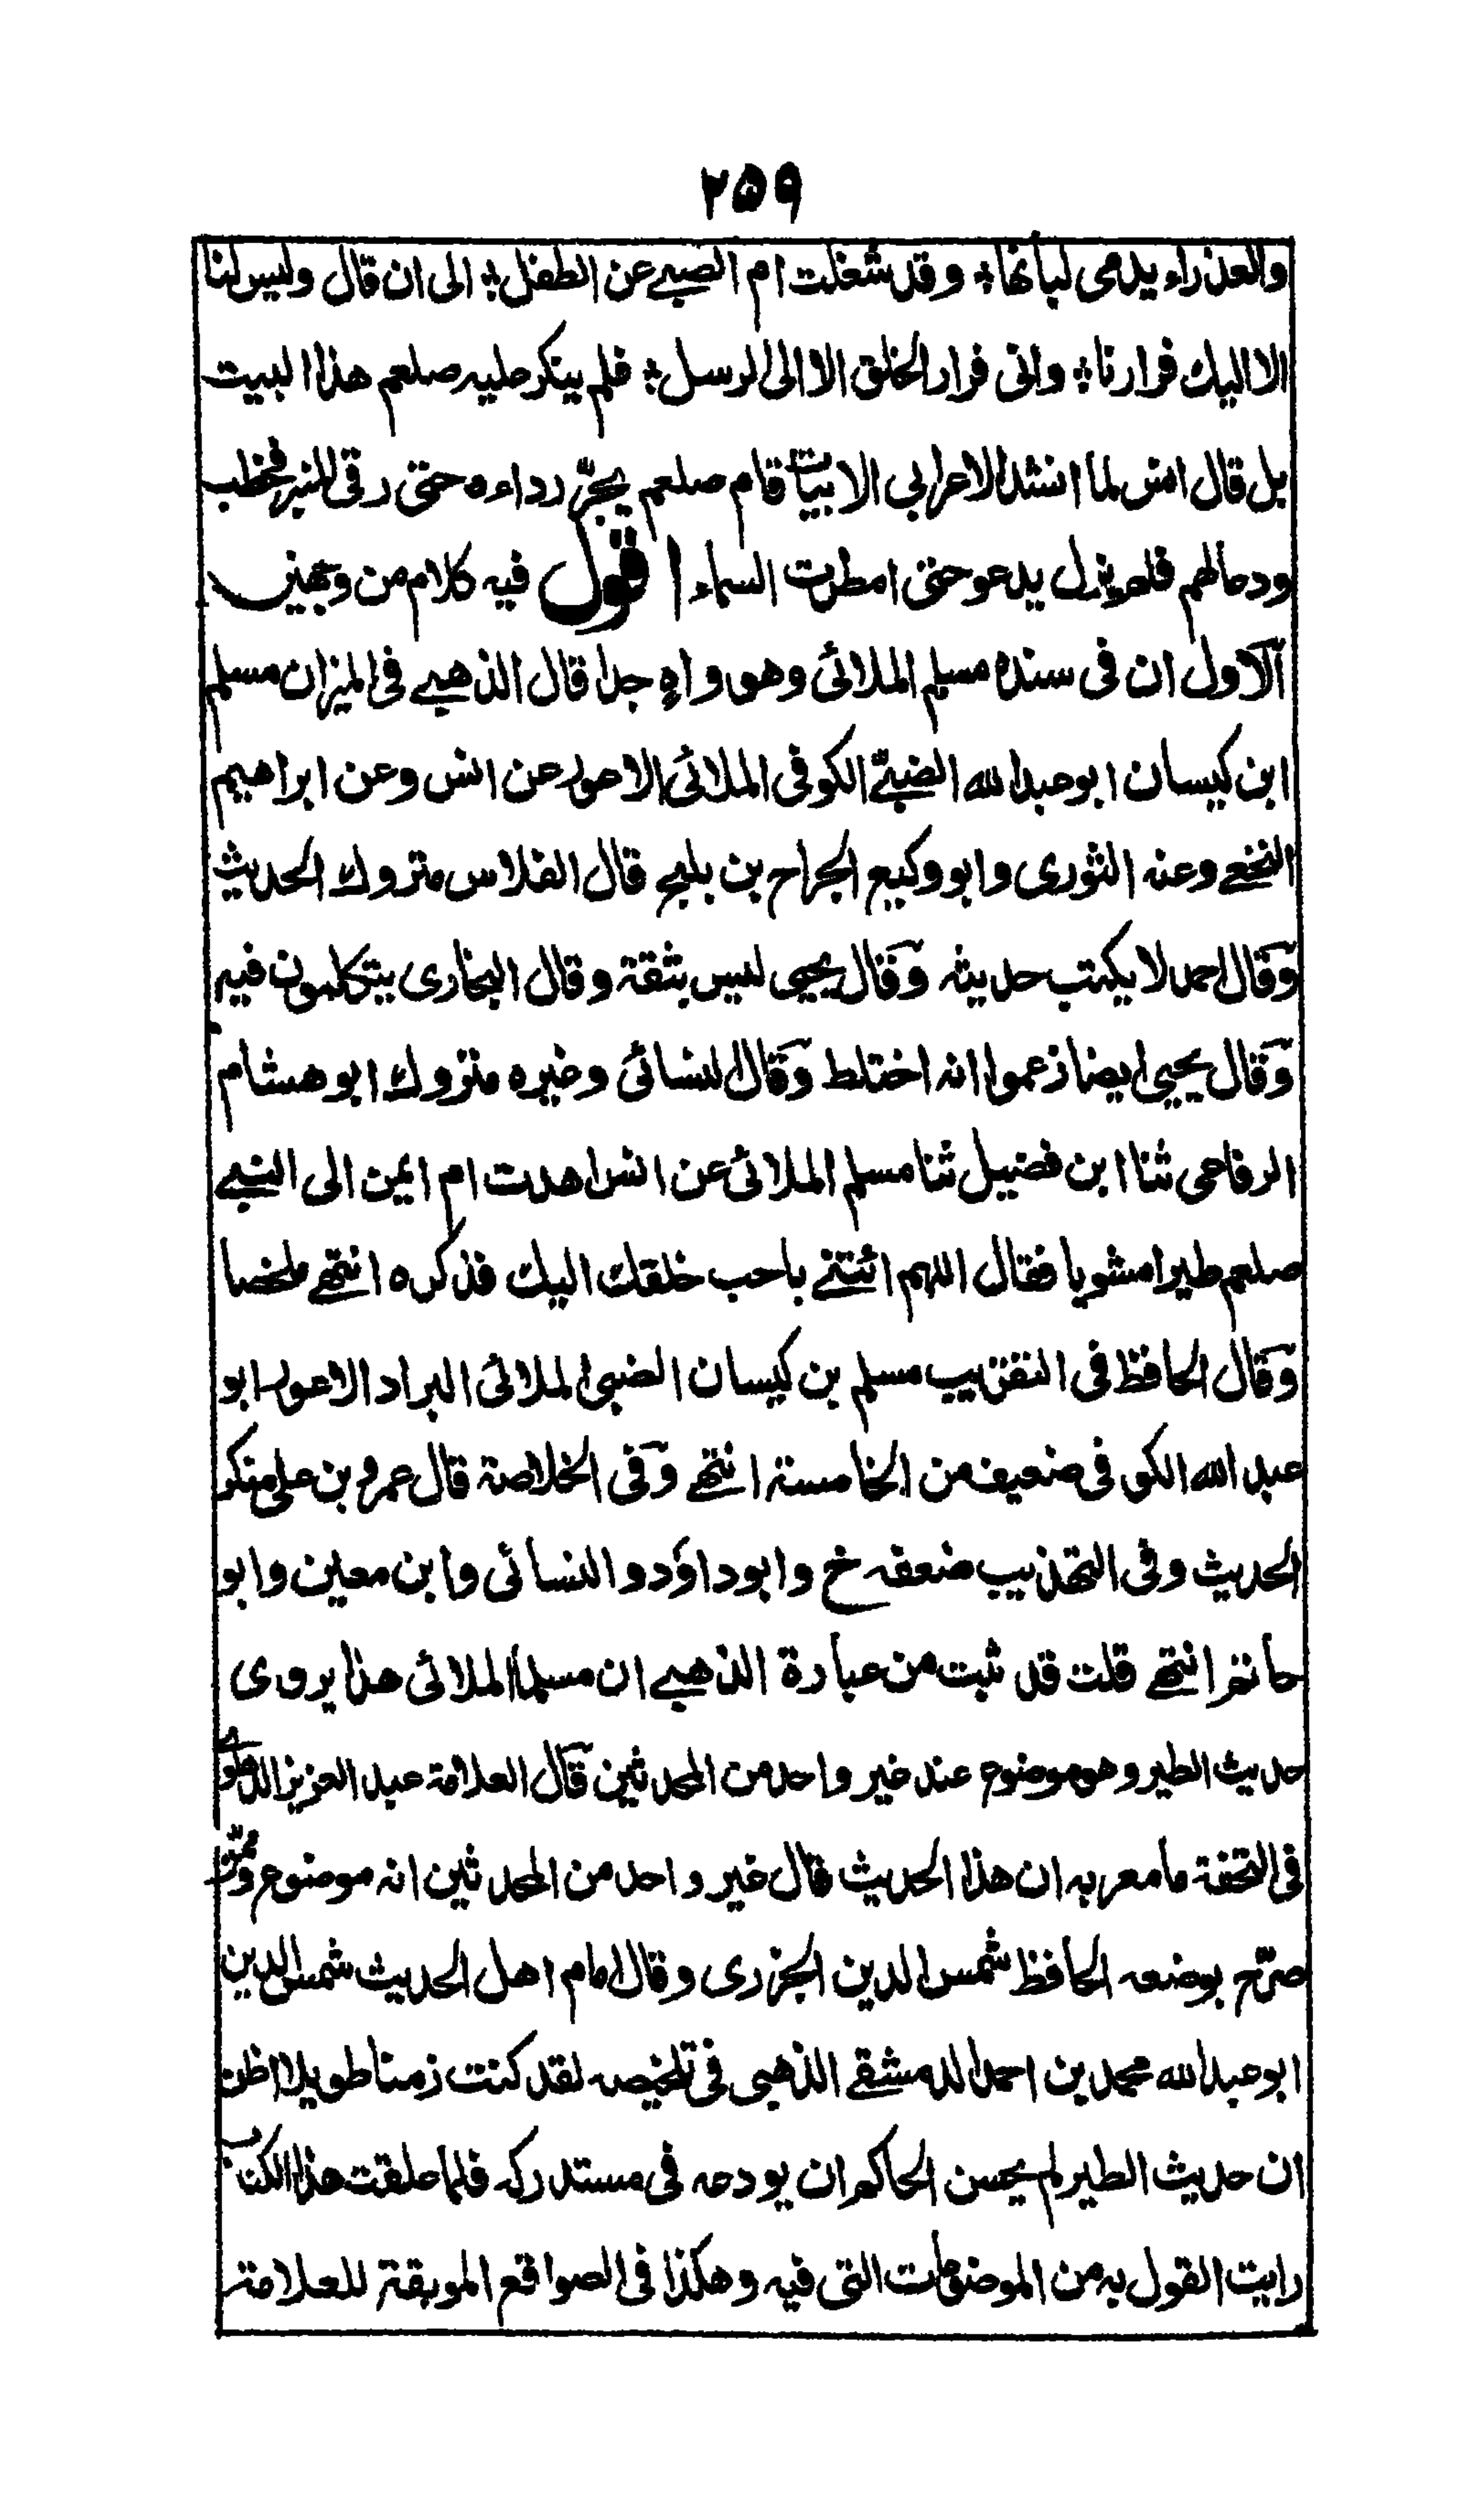 ٢٥٩
والعذراء يدمى لبانها؛ وقد شغلت ام الصبي عن الطفل؛ الى ان قال وليس لنا
الا اليك فرارنا؛ وانى فرار الخلق الا الى الرسل؛ فلم ينكر عليه صلعم هذا البيت
بل قال انس لما انشد الاعرابى الابيات قام صلعم يجرّ رداءه حتى رقى المنبر فخطب
ودعا لهم فلم يزل يدعو حتى امطرت السماء اقول فيه كلام من وجهين
آلاول ان فى سنده مسلم الملائى وهو واهٍ جدا قال الذهبي فى الميزان مسلم
ابن كيسان ابو عبد الله الضبيّ الكوفى الملائى الاعور عن انس وعن ابراهيم
النخعي وعنه الثورى وابو وكيع الجراح بن بليح قال الفلاس متروك الحديث
وقال احمد لا يكتب حديثه وقال يحيى ليس بثقة وقال البخارى يتكلمون فيه
وقال يحيى ايضا زعموا انه اختلط وقال النسائى وغيره متروك ابو هشام
الرفاعى ثنا ابن فضيل ثنا مسلم الملائى عن انس اهدت ام ايمن الى النبي
صلعم طيرا مشويا فقال اللهم ائتني باحب خلقك اليك فذكره انتهي ملخصا
وقال الحافظ فى التقريب مسلم بن كيسان الضبى الملائى البراد الاعور ابو
عبد الله الكوفى ضعيف من الخامسة انتهي وفى الخلاصة قال عمرو بن على منكر
الحديث وفى التهذيب ضعفه خ وابو داؤد والنسائى وابن معين وابو
حاتم انتهي قلت قد ثبت من عبارة الذهبي ان مسلما الملائى هذا يروى
حديث الطير وهو موضوع عند غير واحد من المحدثين قال العلامة عبد العزيز الدهلوي
فى التحفة ما معربه ان هذا الحديث قال غير واحد من المحدثين انه موضوع وممن
صرّح بوضعه الحافظ شمس الدين الجزرى وقال امام اهل الحديث شمس الدين
ابو عبد الله محمد بن احمد الدمشقي الذهبى فى تلخيصه لقد كنت زمنا طويلا اظن
ان حديث الطير لم يحسن الحاكم ان يودعه فى مستدركه فلما علقت هذا الكتاب
رايت القول به من الموضوعات التى فيه وهكذا فى الصواقع الموبقة للعلامة